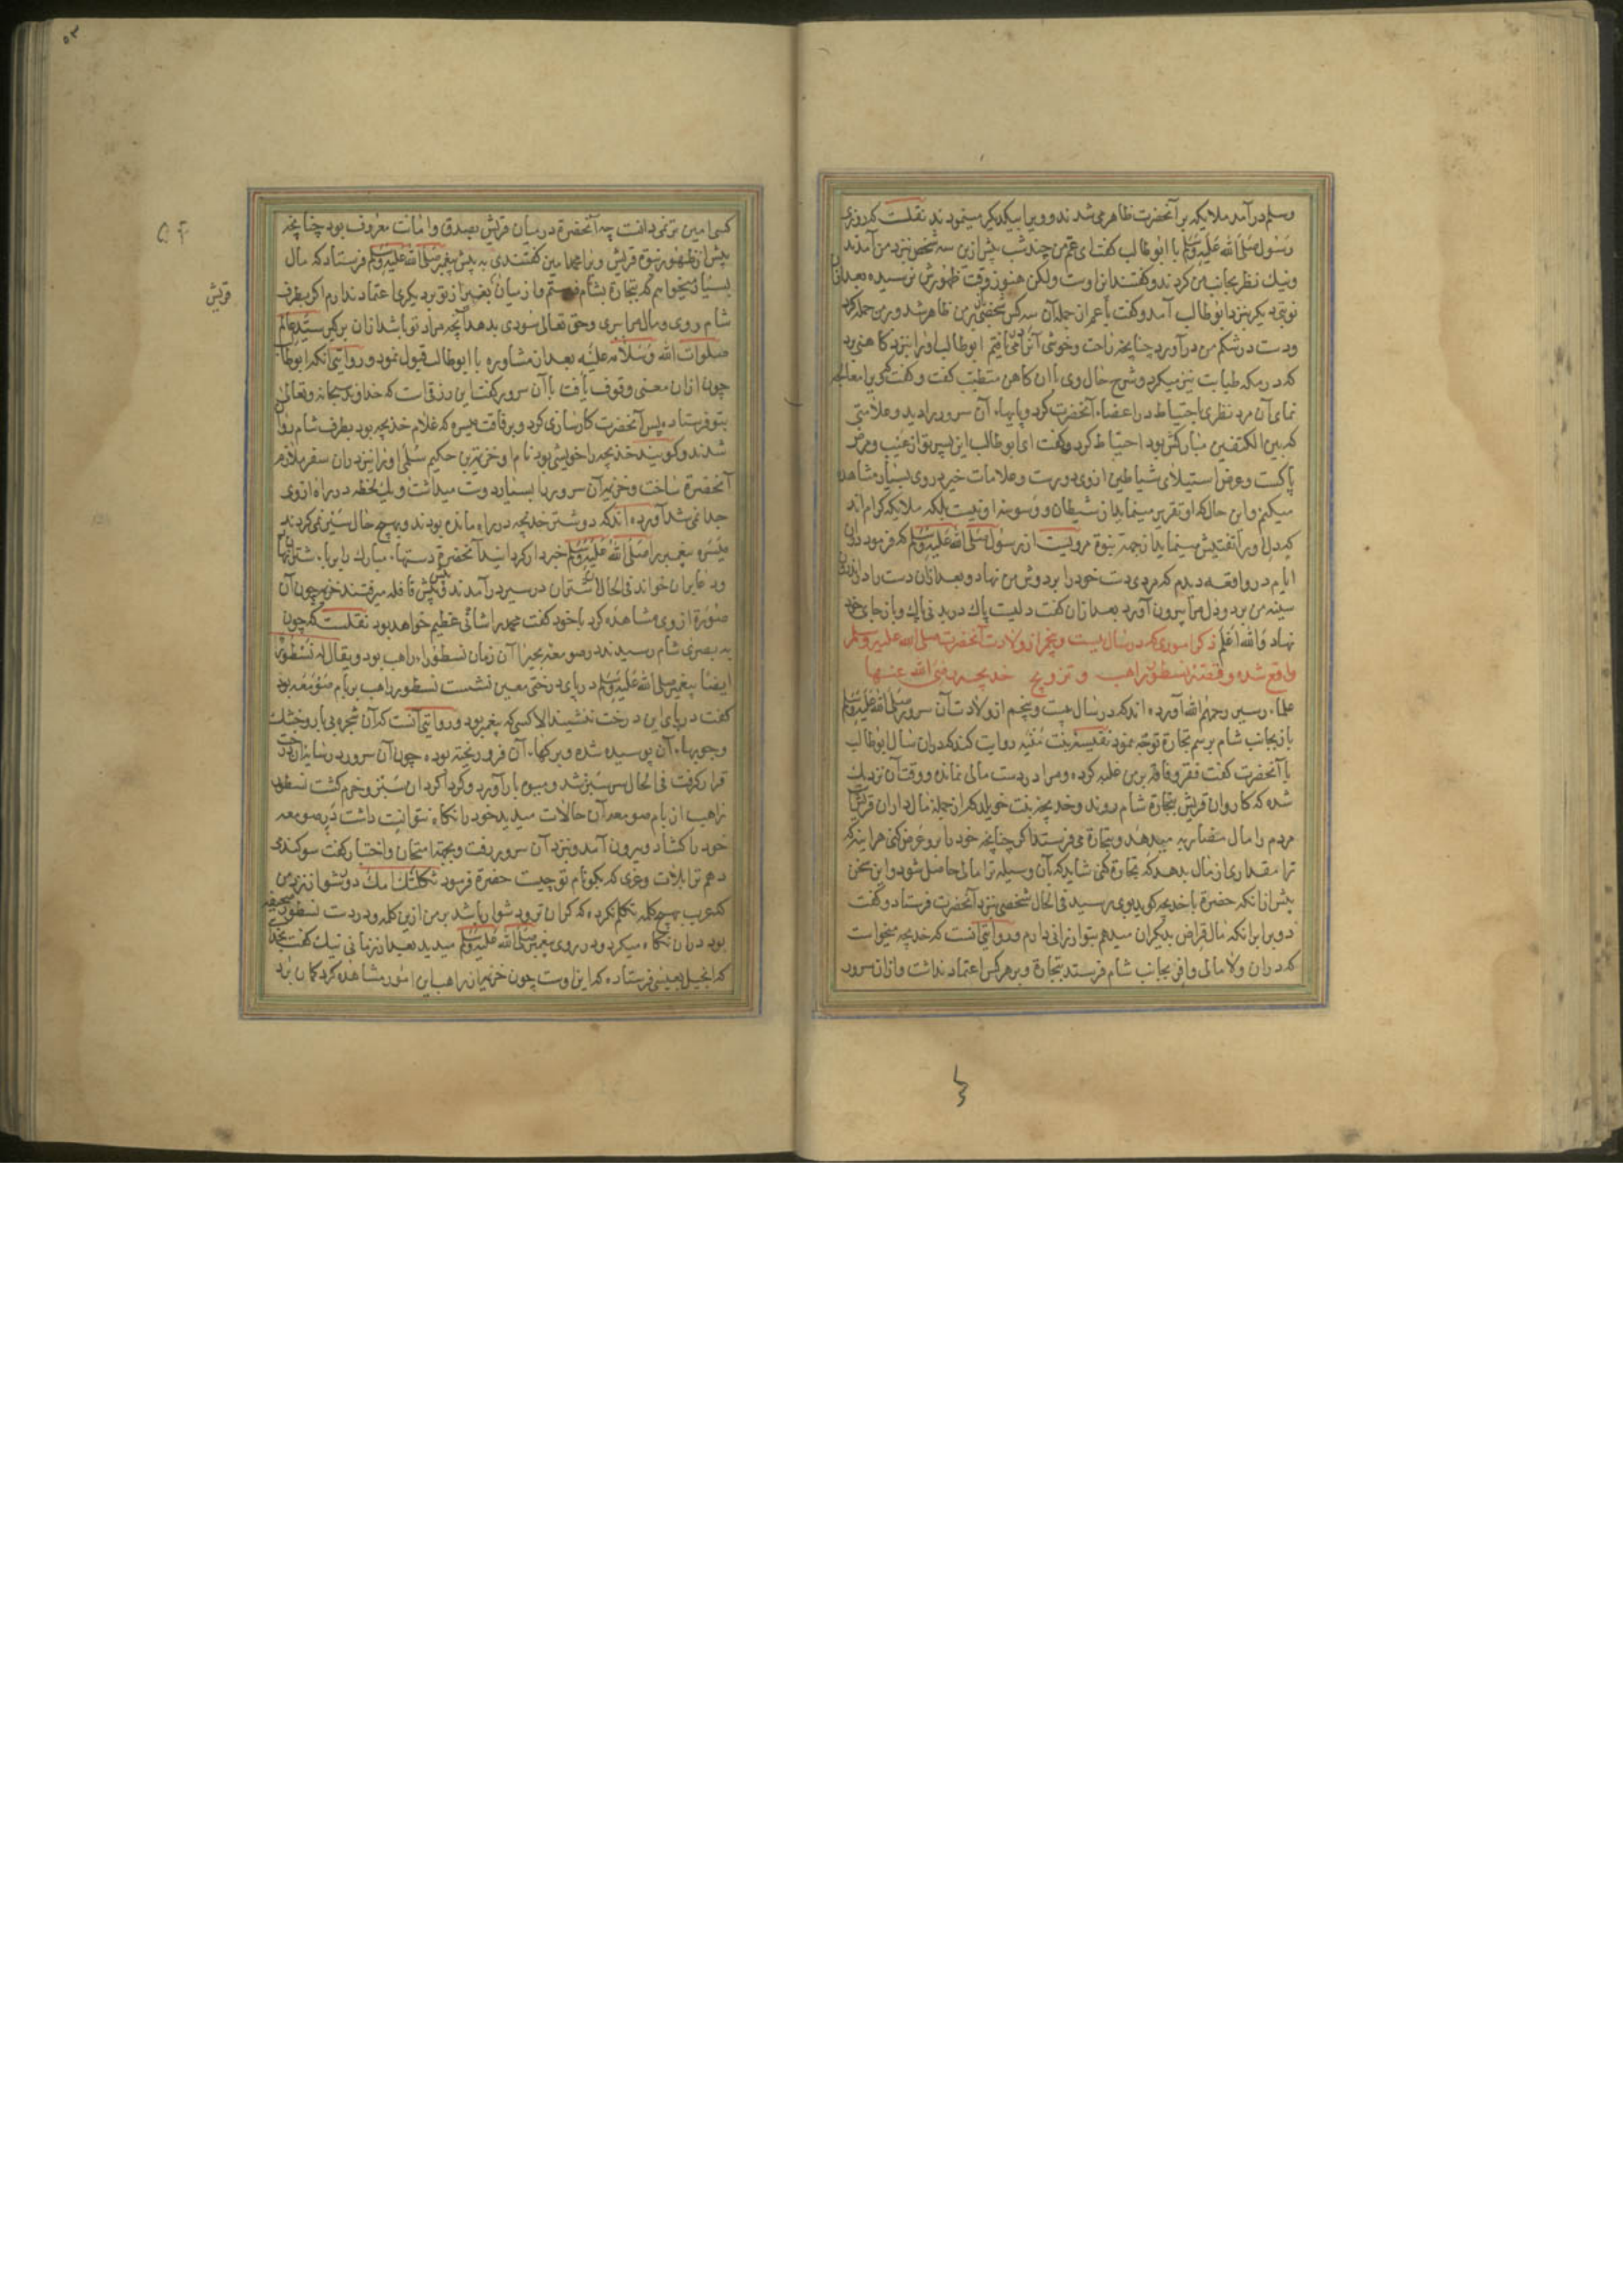 وسلم درآمد ملایکه بر آنحضرت ظاهر می شدند و ویرا بیکدیکر مینمودند نقلست که روزی
رسول صلی الله علیه وسلم با ابوطالب کفت ای عم من چند شب پیش ازین سه شخص نزد من آمدند
ونیك نظر بجانب من کردند و کفتند این اوست ولکن هنوز وقت ظهورش نرسیده بعد ازان
نوبتی دیکر نزد ابوطالب آمد و کفت یا عم ازان جمله آن سه کس شخصی بر من ظاهر شد و بر من حمله کرد
ودست در شکم من درآورد چنانچه راحت وخوشی آنرا می یافتم ابوطالب اورا بنزد کاهنی برد
که در مکه طبابت نیز میکرد وشرح حال وی با آن کاهن متطبب کفت و کفت که ویرا معالجه
نمای آن مرد نظری باحتیاط در اعضاء آنحضرت کرد وپایهاء آن سرور را دید وعلامتی
که بین الکتفین مبارکش بود احتیاط کرد وکفت ای ابوطالب این پسر تو از عیب ومرض
پاکست وعرض استیلای شیاطین از وی دورست وعلامات خیر در وی بسیار مشاهده
میکنم واین حال که او تقریر مینماید از شیطان و وسوسه او نیست بلکه ملایکه کرام اند
که دل اورا تفتیش مینمایند از جهة نبوة مرویست از رسول صلی الله علیه وسلم که فرمود دران
ایام در واقعه دیدم که مردی دست خود را بر دوش من نهاد وبعد ازان دست را در اندرون
سینه من برد ودل مرا بیرون آورد بعد ازان کفت دلیست پاك در بدنی پاك وباز جای خود
نهاد والله اعلم ذکر اموری که در سال بیست وپنجم از ولادت آنحضرت صلی الله علیه وسلم
واقع شده وقصه نسطور راهب و تزویج خدیجه رضی الله عنها
علماء سیر رحمهم الله آورده اند که در سال بیست وپنجم از ولادت آن سرور صلی الله علیه وسلم
باز بجانب شام برسم تجارة توجه نمود نفیسه بنت منیه روایت کند که دران سال ابوطالب
با آنحضرت کفت فقر وفاقه بر من غلبه کرده ومرا در دست مالی نمانده ووقت آن نزدیك
شده که کاروان قریش بتجارة شام روند وخدیجه بنت خویلد که از جمله مال داران قریش است
مردم را مال مضاربه میدهد وبتجارة می فرستد اکر چنانچه خود را برو عرض کنی هر اینه که
ترا مقداری از مال بدهد که تجارة کنی شاید که بآن وسیله ترا مالی حاصل شود واین سخن
پیش ازانکه حضرة با خدیجه کوید بوی رسید فی الحال شخصی بنزد آنحضرت فرستاد وکفت
دو برابر انکه مال قراض بدیکران میدهم بتو ارزانی دارم وروایتی آنست که خدیجه میخواست
که دران ولا مالی وافر بجانب شام فرستد بتجارة وبر هر کس اعتماد نداشت وازان سرور
کسی امین تر نمی دانست چه آنحضرة در میان قریش بصدق وامانت معروف بود چنانچه
پیش از ظهور نبوة قریش ویرا محمد امین کفتندی به پیش پیغمبر صلی الله علیه وسلم فرستاد که مال
بسیار میخواهم که بتجارة بشام فرستم واز میان بغیر از تو بر دیکری اعتماد ندارم اکر بطرف
شام روی ومال مرا ببری وحق تعالی سودی بدهد آنچه مراد تو باشد ازان برکیر سید عالم
صلوات الله وسلامه علیه بعد از مشاوره با ابوطالب قبول نمود وروایتی انکه ابوطالب
چون ازان معنی وقوف یافت با آن سرور کفت این رزقیست که خداوند سبحانه وتعالی
بتو فرستاده پس آنحضرت کارسازی کرد وبرفاقت میسره که غلام خدیجه بود بطرف شام روان
شدند وکویند خدیجه را خویشی بود نام او خزیمة بن حکیم سلمی اورا نیز دران سفر ملازم
آنحضرة ساخت وخزیمه آن سرور را بسیار دوست میداشت ویك لحظه در راه از وی
جدا نمی شد آورده اند که دو شتر خدیجه در راه مانده بودند وبهیچ حال سیر نمی کردند
میسره پیغمبر را صلی الله علیه وسلم خبردار کردانید آنحضرة دستهاء مبارك را بر پاء شتران نهاد
ودعا بر ایشان خواند فی الحال شتران در سیر درآمدند وپیش پیش قافله میرفتند خزیمه چون آن
صورة از وی مشاهده کرد با خود کفت محمد را شانی عظیم خواهد بود نقلست که چون
به بصری شام رسیدند در صومعه بحیرا آن زمان نسطورا راهب بود ویقال له نسطور
ایضا پیغمبر صلی الله علیه وسلم در پای درختی معین نشست نسطور راهب بر بام صومعه بود
کفت در پای این درخت ننشیند الا کسی که پیغمبر بود وروایتی آنست که آن شجره بی بار وخشك
وچوبهاء آن پوسیده شده وبرکهاء آن فرو ریخته بوده چون آن سرور در سایه آن درخت
قرار کرفت فی الحال سر سبز شد ومیوه بار آورد وکرداکرد آن سبز وخرم کشت نسطور
راهب از بام صومعه آن حالات میدید خود را نکاه نتوانست داشت در صومعه
خود را کشاد وبیرون آمد وبنزد آن سرور رفت وبجهة امتحان واختبار کفت سوکند می
دهم ترا بلات وعزی که بکو نام تو چیست حضرة فرمود ثکلتك امك دور شو از نزد من
که عرب بهیچ کلمه تکلم نکرده که کران تر ودشوار باشد بر من ازین کلمه ودر دست نسطور صحیفه
بود دران نکاه میکرد ودر روی پیغمبر صلی الله علیه وسلم میدید بعد از زمانی نیك کفت بخدای
که انجیل بعیسی فرستاده که این اوست چون خزیمه از راهب این امور مشاهده کرد کمان برد
قریش
۵۴
۵۳